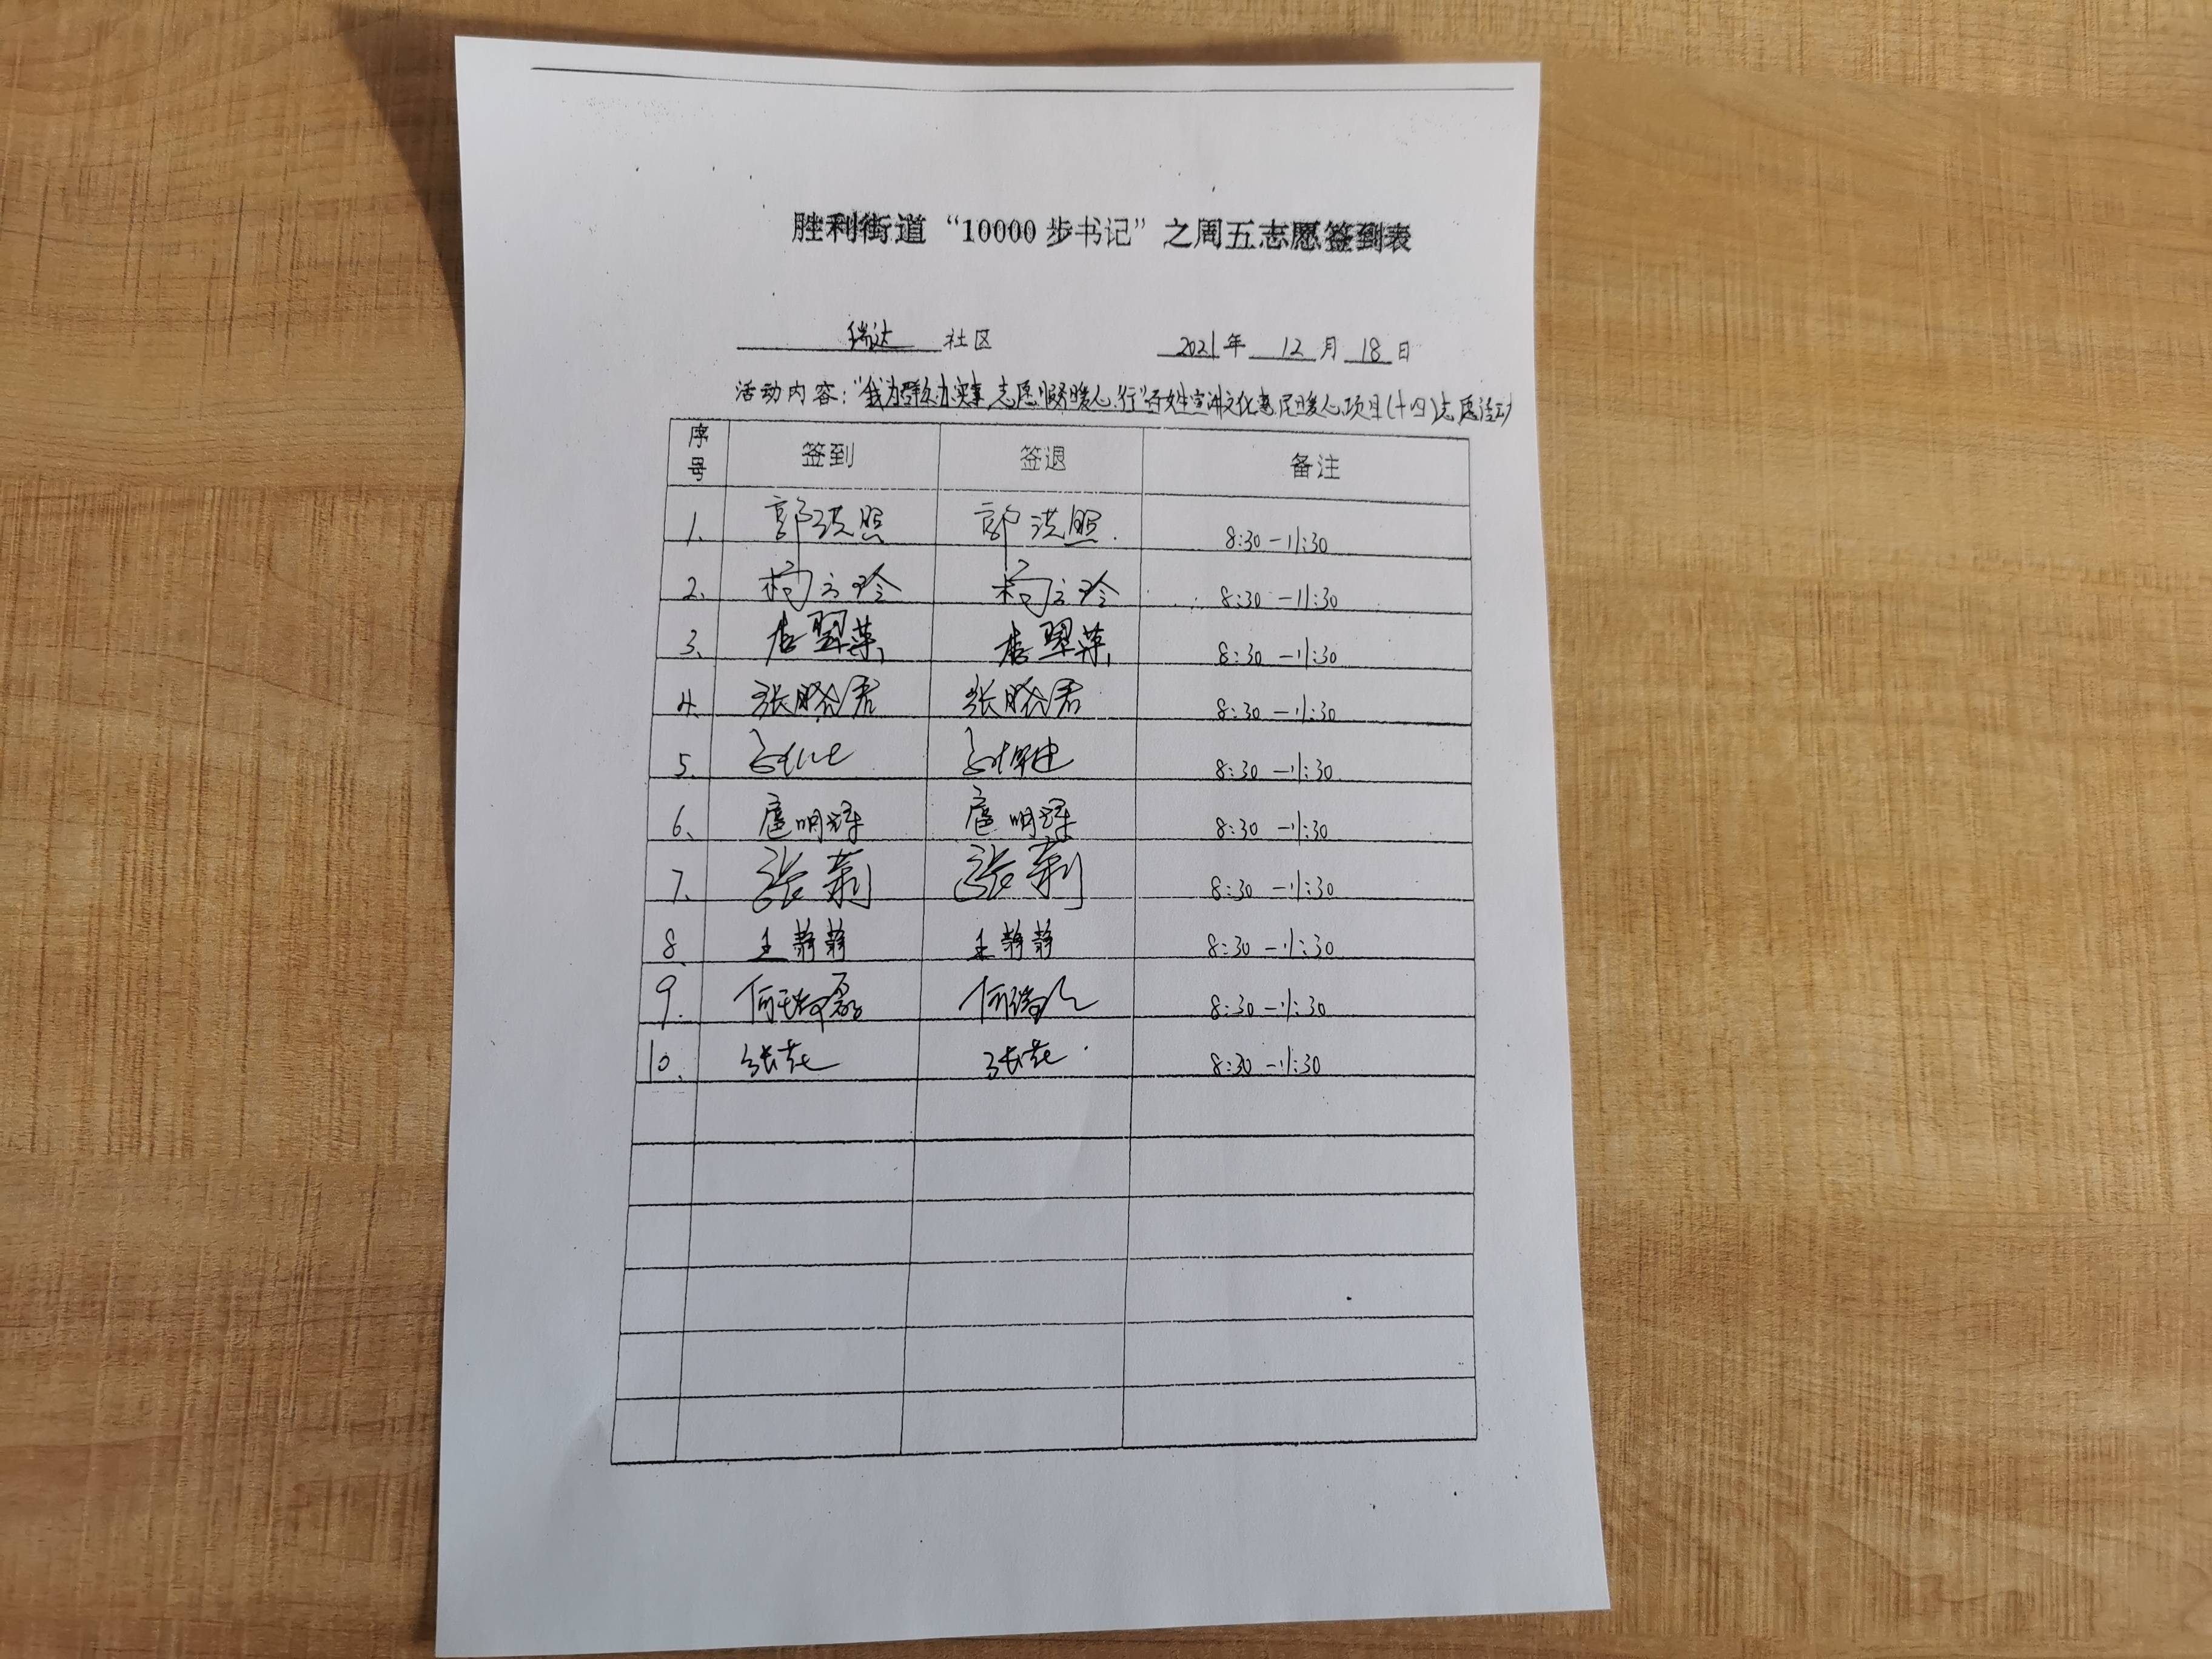 胜利街道“10000步书记”之周五志愿签到表
瑞达 社区 2021年 12月 18日
活动内容：“我为群众办实事，志愿服务暖人心行”百姓宣讲文化惠民暖人心项目(十四)志愿活动
序号 签到 签退 备注
1. 郭洪照 郭洪照 8:30-11:30
2、 8:30-11:30
3、 8:30-11:30
4. 张晓君 张晓君 8:30-11:30
5. 8:30-11:30
6、 扈明泽 扈明泽 8:30-11:30
7. 张莉 张莉 8:30-11:30
8、 王静静 王静静 8:30-11:30
9. 何瑞磊 何瑞 8:30-11:30
10、 张花 张花 8:30-11:30